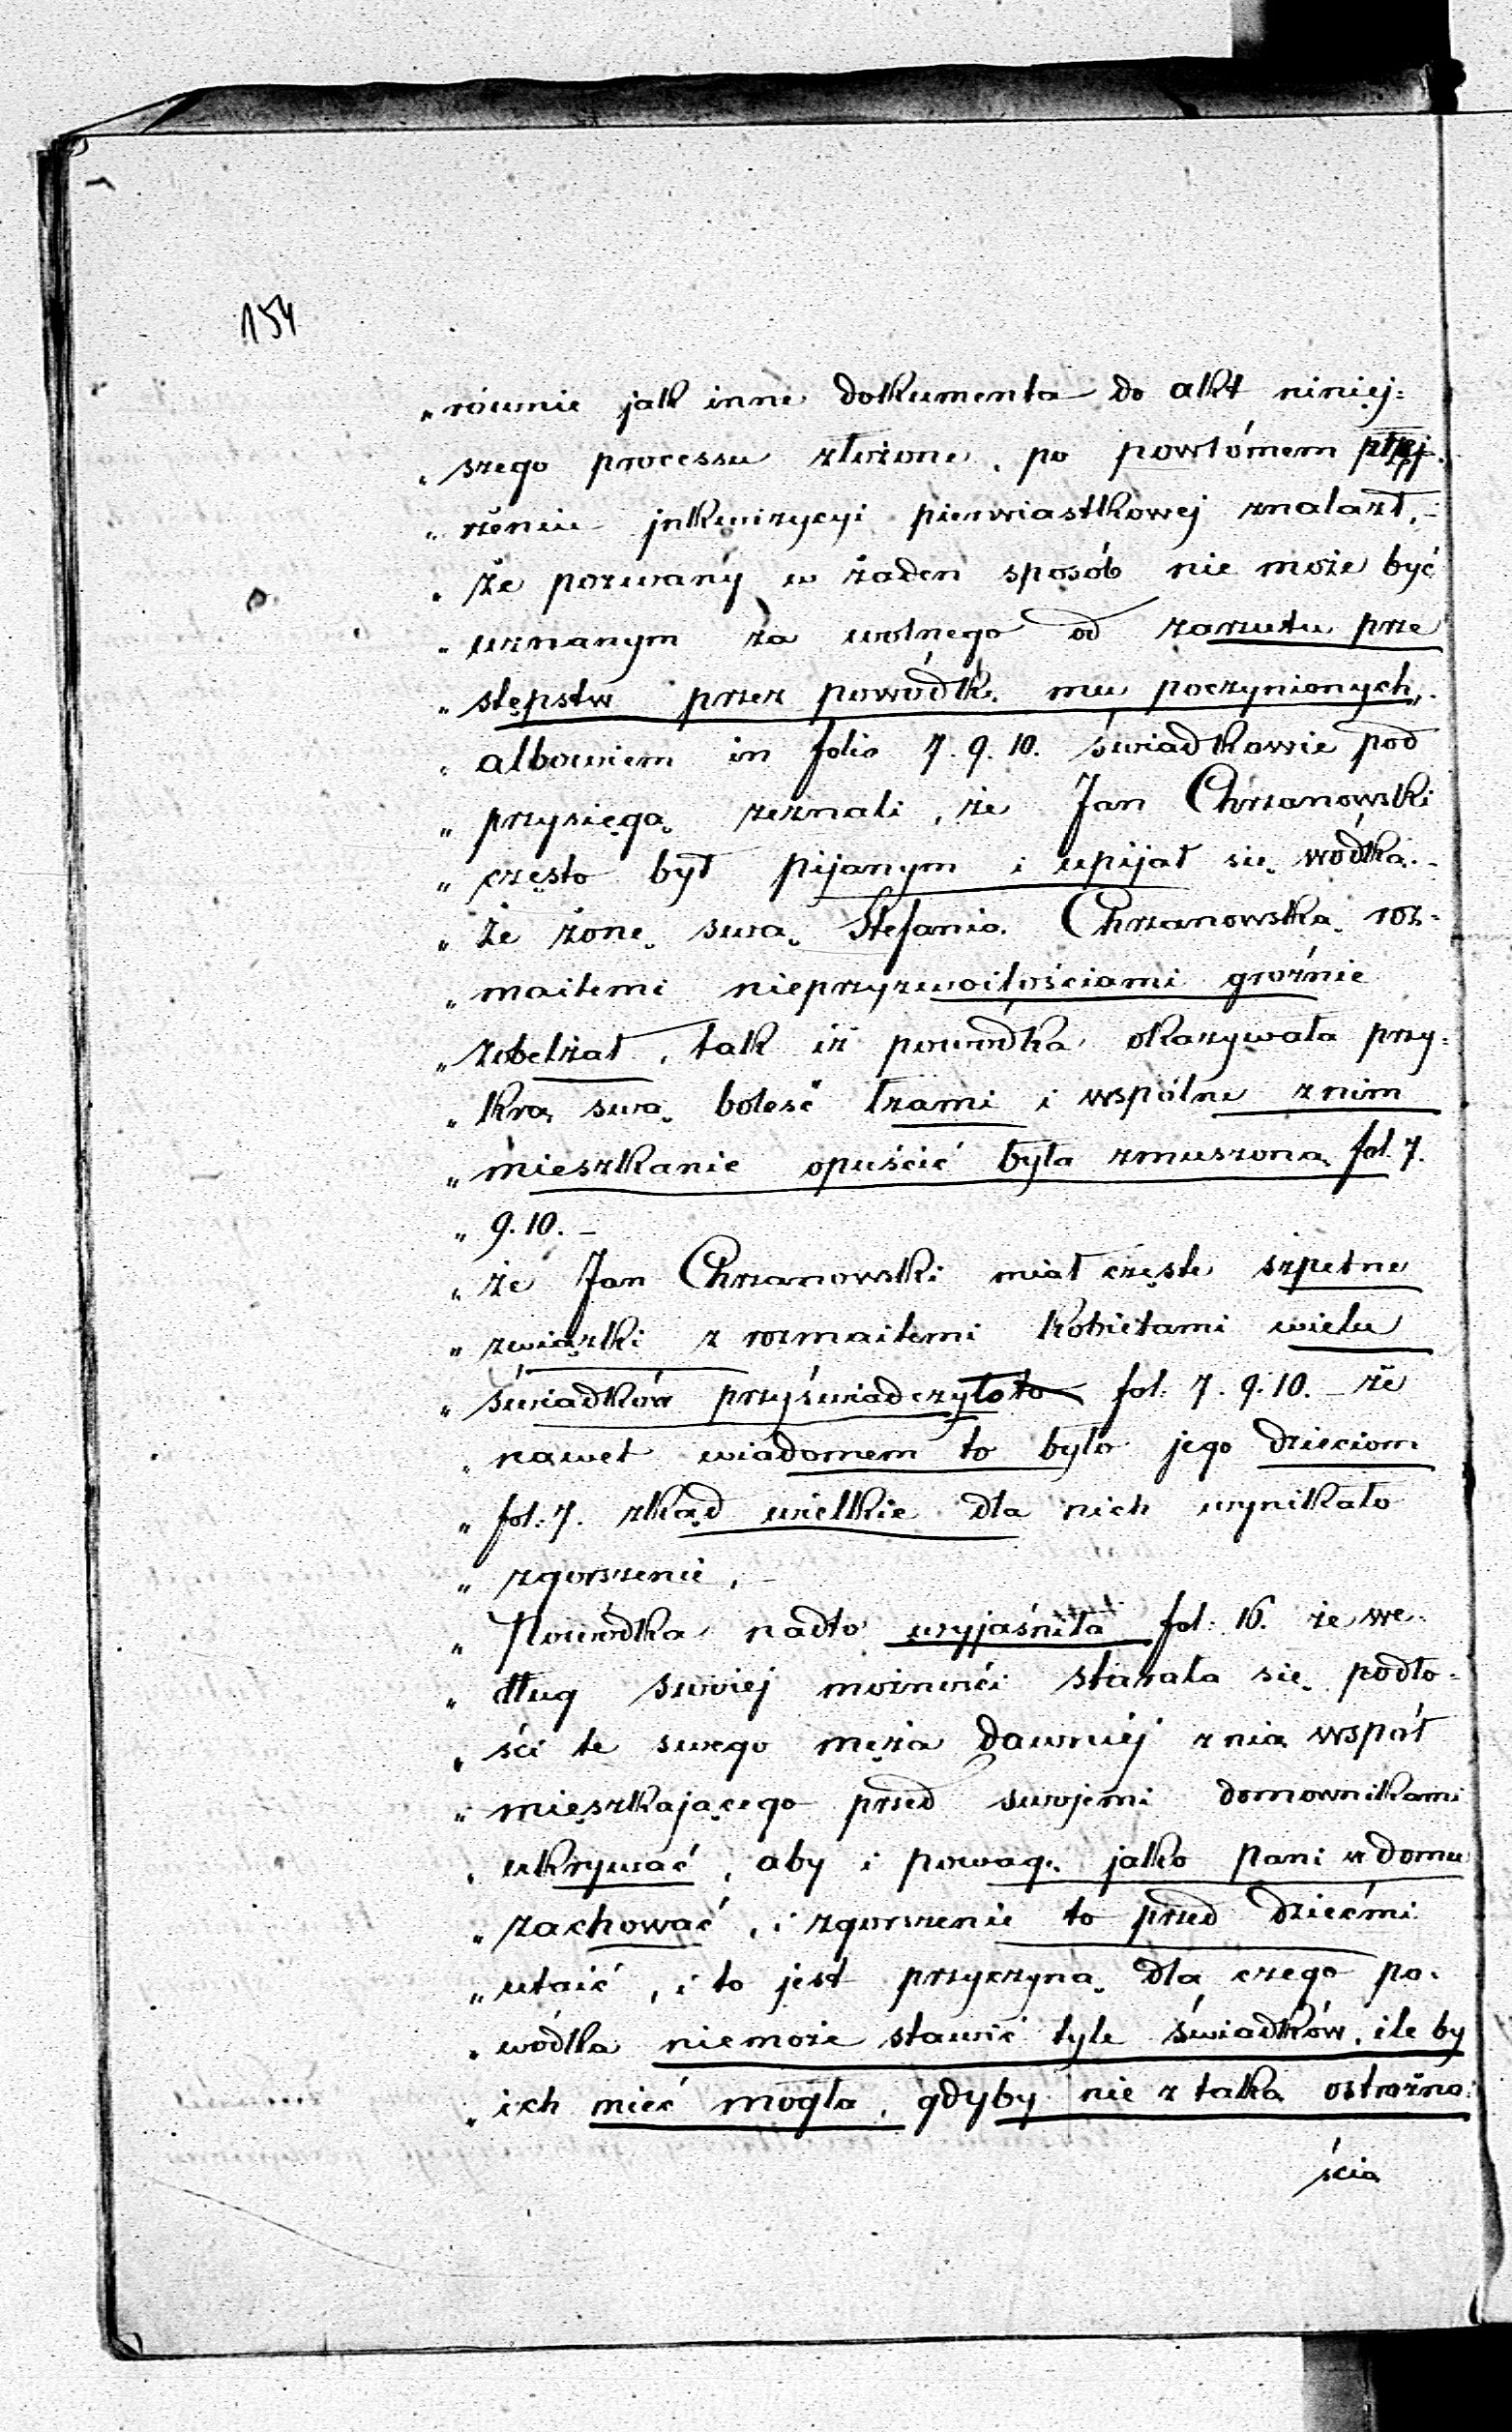 154
„ równie jak inne dokumenta do akt niniej:
„ szego processu złożone, po powtórnem przej-
„ rzeniu jnkwizycyi pierwiastkowej znalazł,-
„ że pozwany w żaden sposób nie może być
„ uznanym za wolnego od zarzutu prze
„ stępstw przez powódk. mu poczynionych,
„ albowiem in folio 7. 9. 10. świadkowie pod
„ przysięgą zeznali, że Jan Chrzanowski
„ często był pijanym i upijał się wódką.-
„ Że żonę swą Stefanią Chrzanowską roz-
„ maitemi nieprzyzwoitościami groźnie
„ zobelżał, tak iż powódka okazywała przy:
„ krą swą boleść łzami i wspólne z nim
„ mieszkanie opuścić była zmuszoną fol. 7.
„ 9. 10. –
„ że Jan Chrzanowski miał częste szpetne
„ związki z rozmaitemi kobietami wielu
„ świadków przyświadczyło to fol: 7. 9. 10. – że
„ nawet wiadomem to było jego dzieciom
„ fol: 7. zkąd wielkie dla nich wynikało
„ zgorszenie, –
„ Powódka nadto wyjaśniła fol: 16. że we-
„ dług swoiej możności starała się podło-
„ ści te swego męża dawniéj z nią współ
„ mięszkającego przed swojemi domownikami
„ ukrywać, aby i powagę jako pani w domu
„ zachować, i zgorszenie to przed dziećmi
„ utaić, i to jest przyczyną dla czego po-
„ wódka niemoże stawić tyle świadków, ile by
„ ich mieć mogła, gdyby nie z taką ostrożno:
ścią